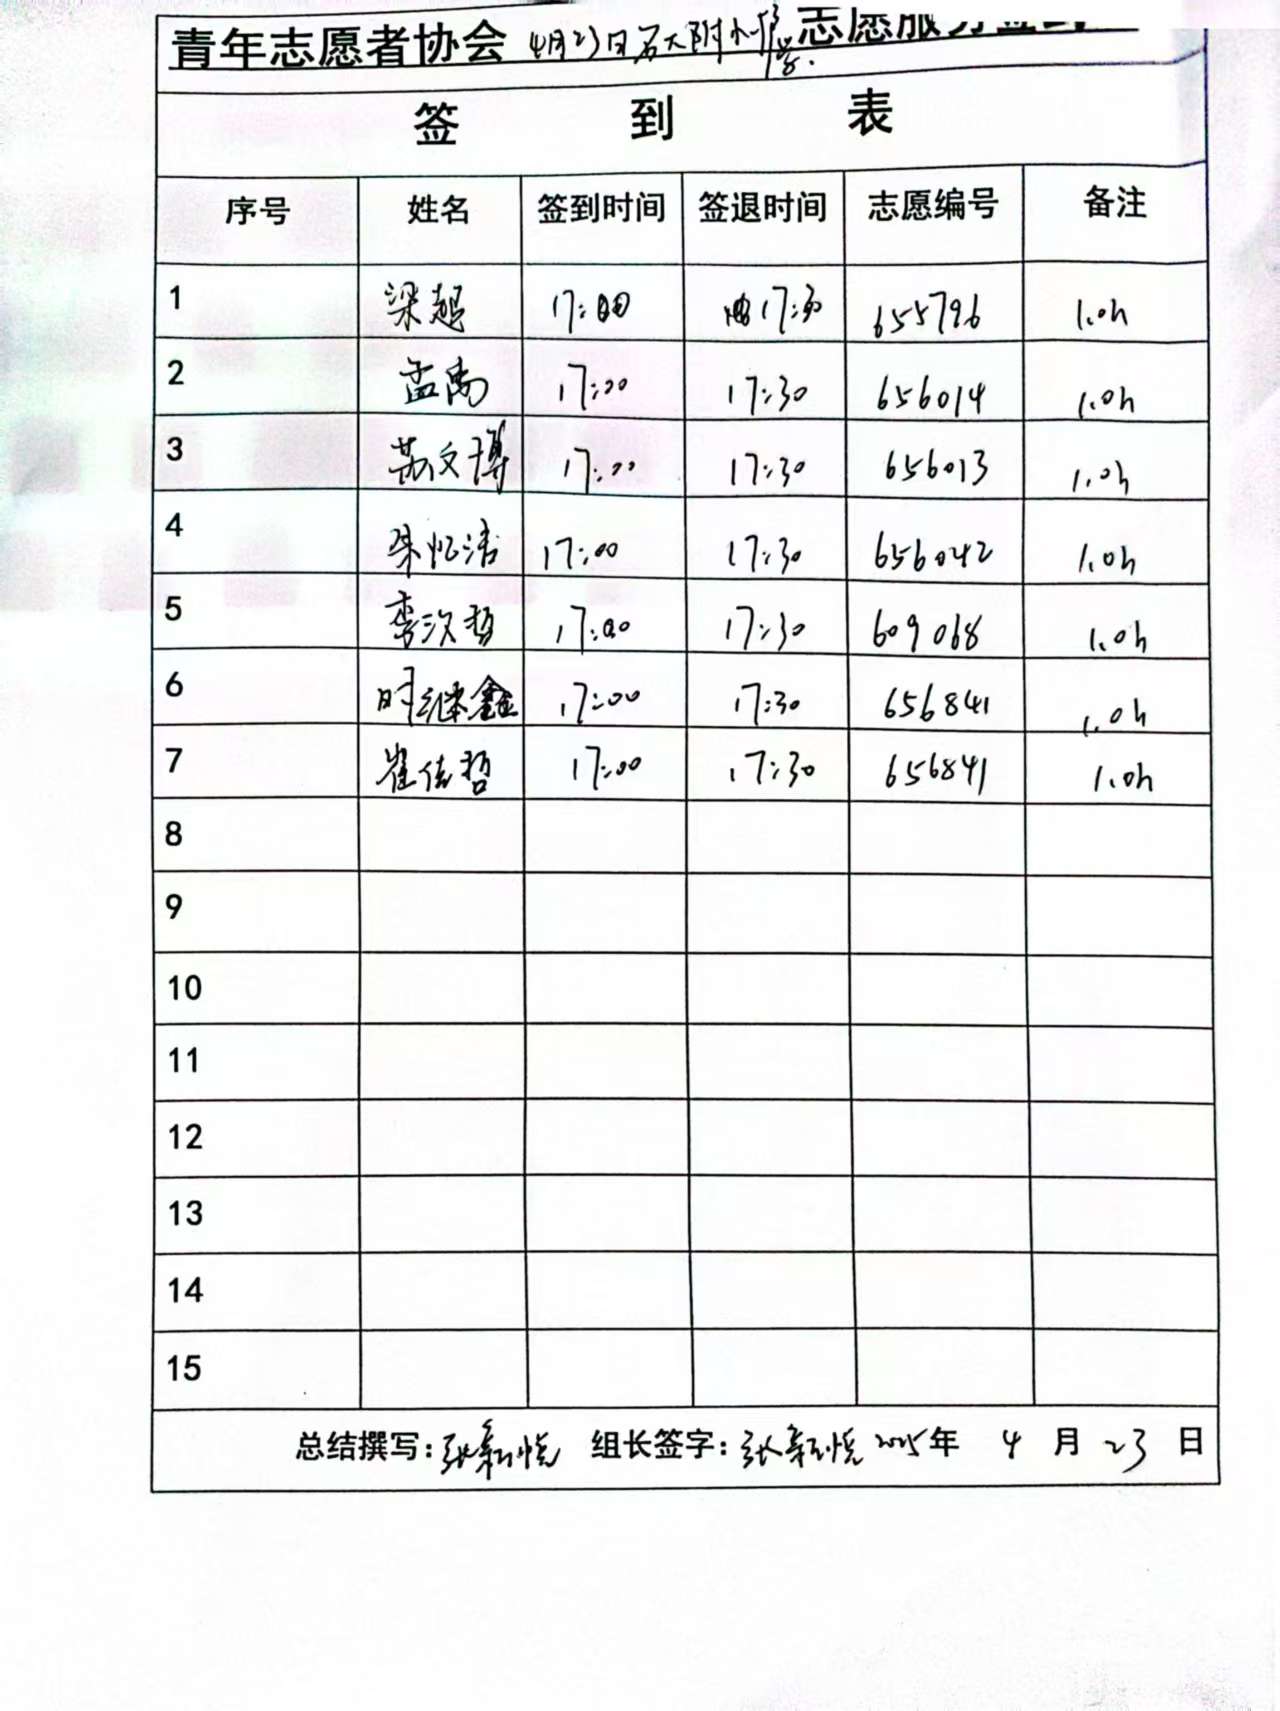 青年志愿者协会 4月23日石大附小护学 志愿服务签到
签 到 表
序号 姓名 签到时间 签退时间 志愿编号 备注
1 梁超 17:00 17:30 655796 1.0h
2 孟禹 17:00 17:30 656014 1.0h
3 苏文博 17:00 17:30 656013 1.0h
4 朱忆洁 17:00 17:30 656042 1.0h
5 17:00 17:30 609068 1.0h
6 时继鑫 17:00 17:30 656841 1.0h
7 崔佳哲 17:00 17:30 656841 1.0h
8
9
10
11
12
13
14
15
总结撰写: 组长签字: 2025年 4 月 23 日